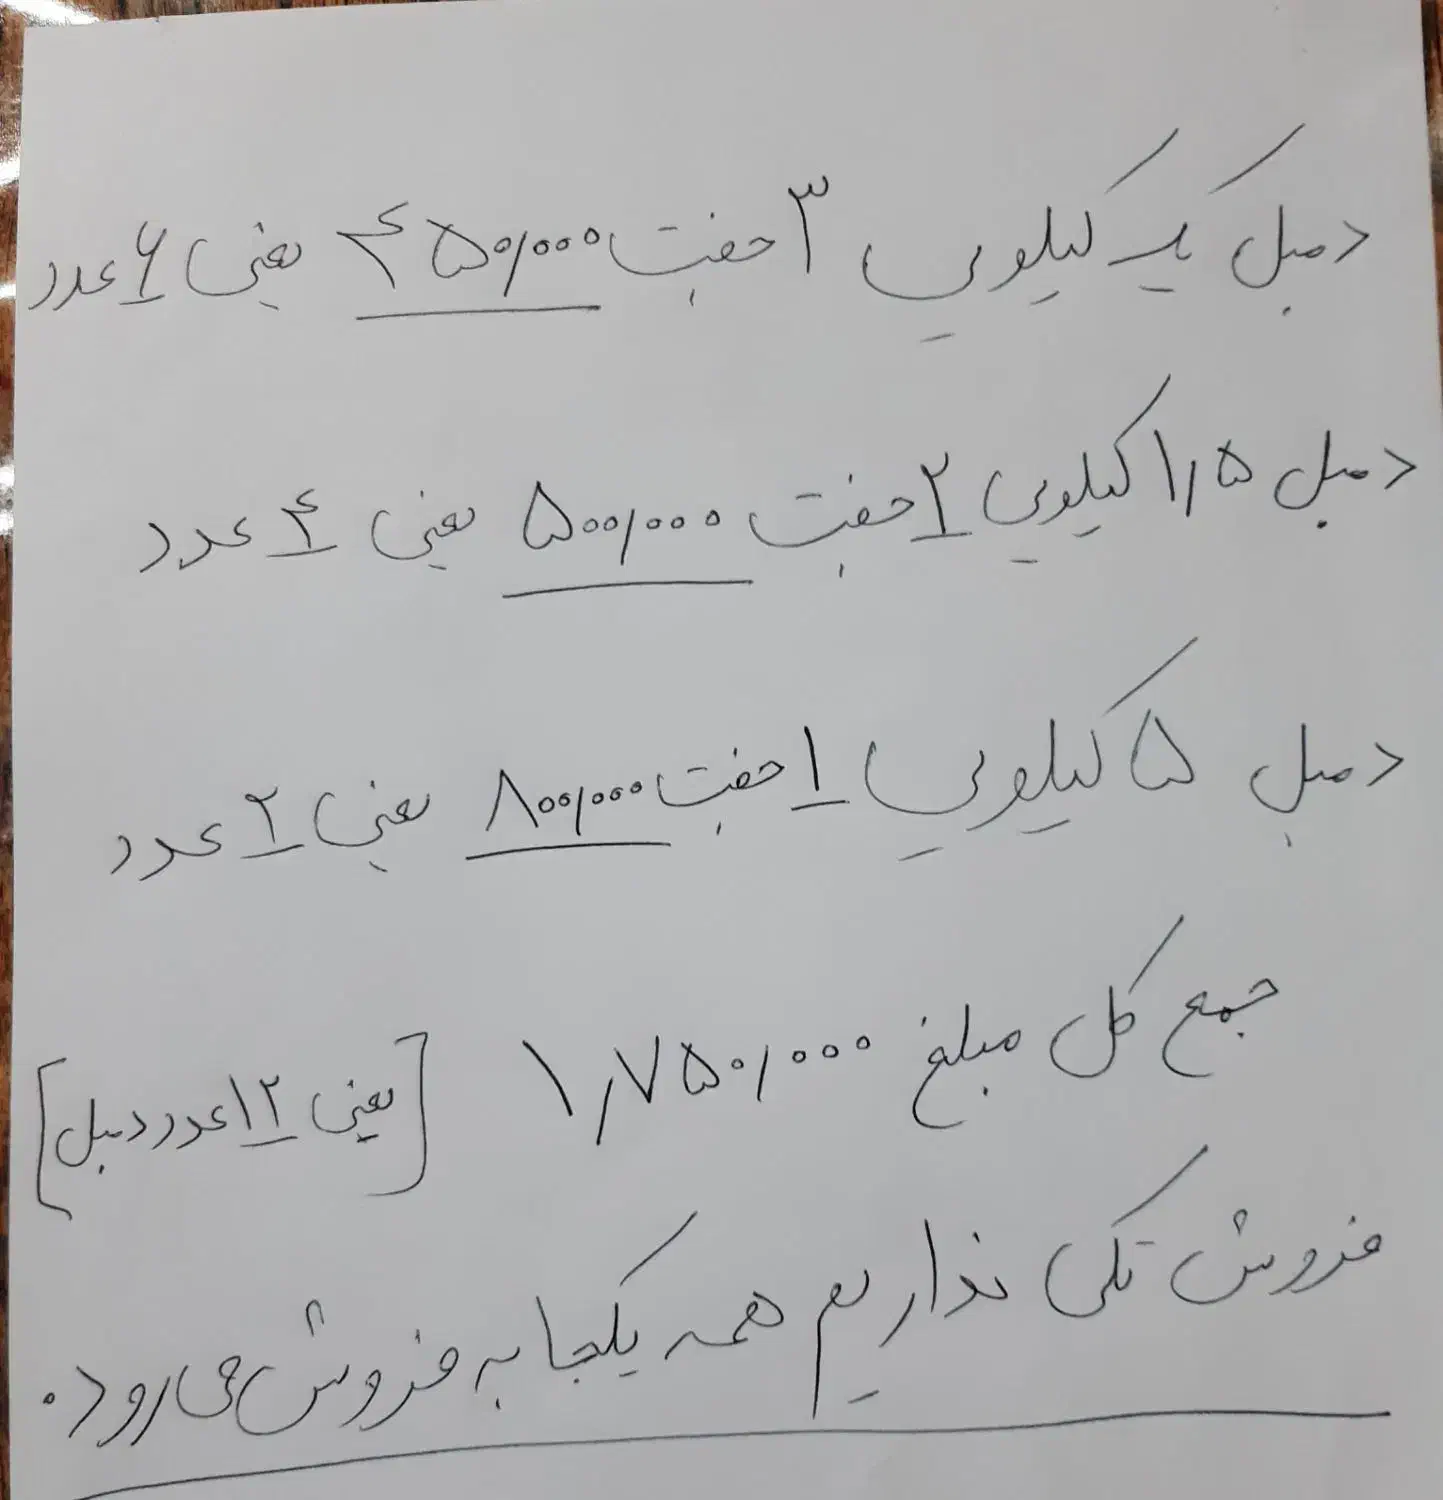 دمبل یک کیلویی ۳ جفت ۴۵۰/۰۰۰ یعنی ۶ عدد
دمبل ۱/۵ کیلویی ۲ جفت ۵۰۰/۰۰۰ یعنی ۴ عدد
دمبل ۵ کیلویی ۱ جفت ۸۰۰/۰۰۰ یعنی ۲ عدد
جمع کل مبلغ ۱/۷۵۰/۰۰۰ [یعنی ۱۲ عدد دمبل]
فروش تکی نداریم همه یکجا به فروش می‌رود.